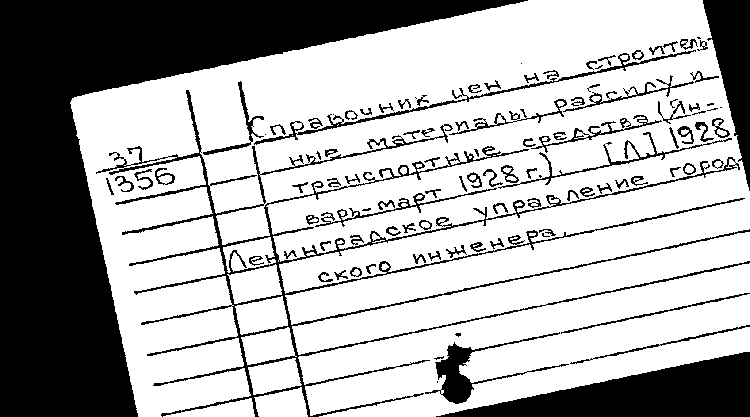 37
1356
Справочник цен на строитель-
ные материалы, рабсилу и
транспортные средства (Ян-
варь-март 1928 г.). [Л.], 1928.
Ленинградское управление город
ского инженера.